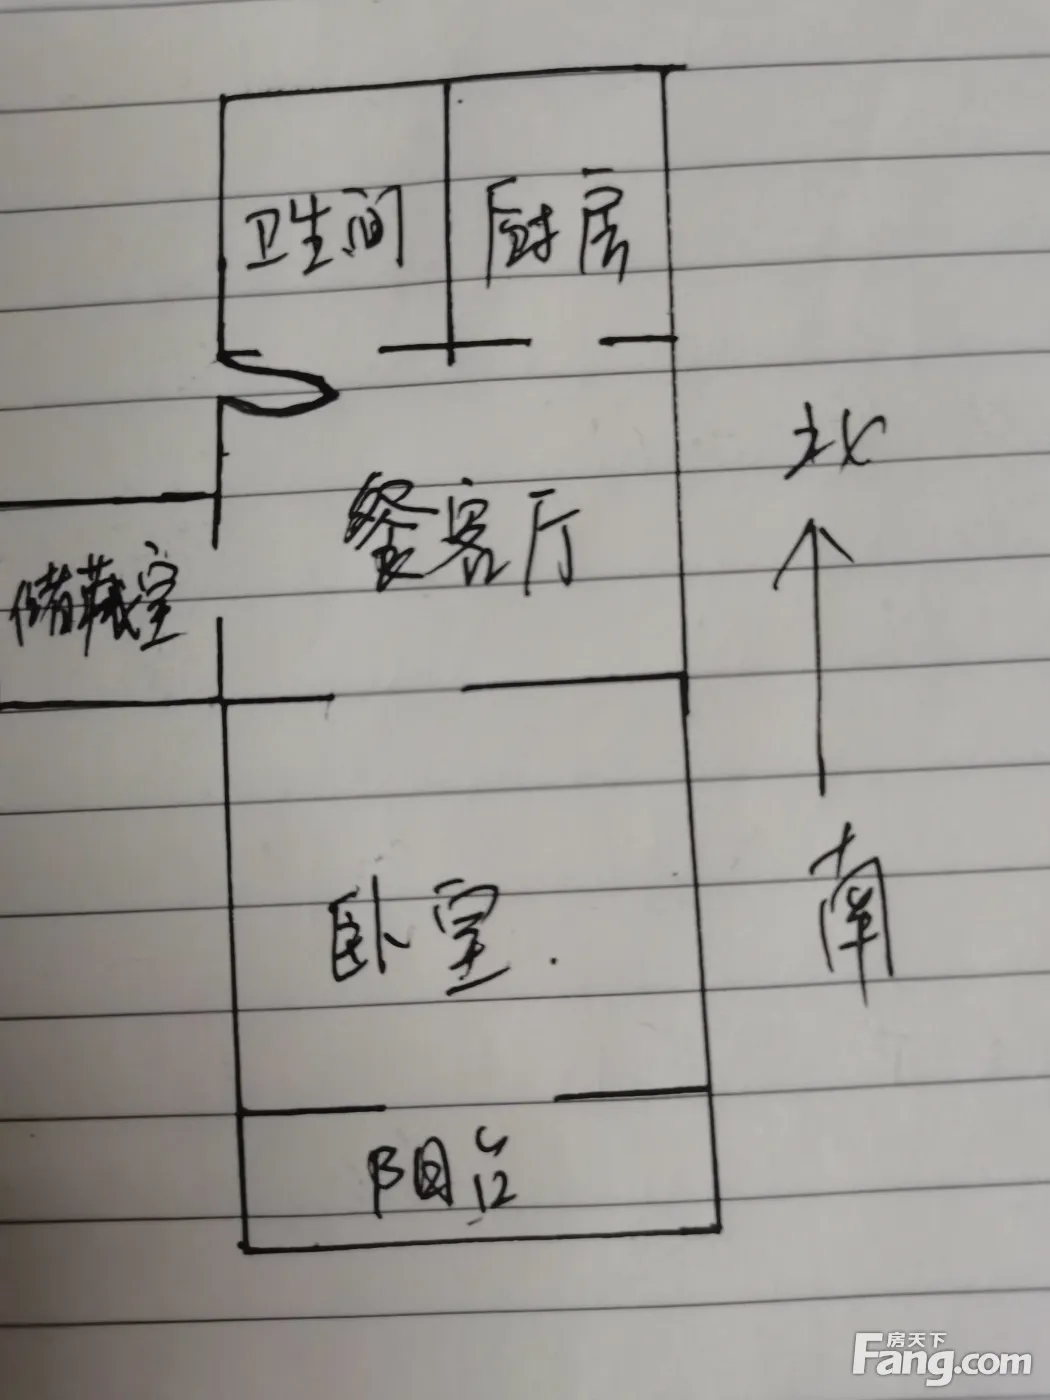 卫生间
厨房
北
餐客厅
储藏室
南
卧室.
阳台
房天下
Fang.com